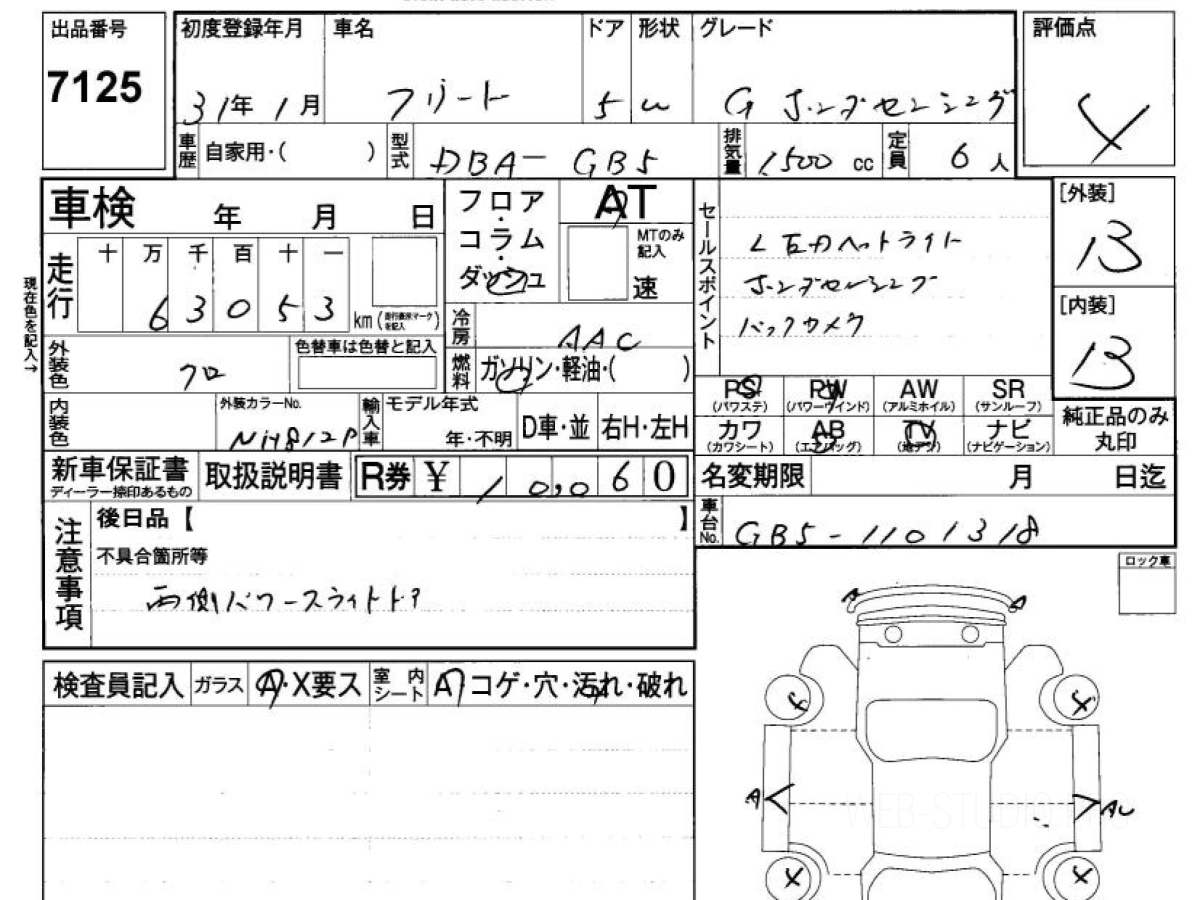 出品番号
7125
初度登録年月
31年 1月
車名
フリード
ドア
5
形状
W
グレード
G ホンダセンシング
評価点
4
車歴
自家用・( )
型式
DBA- GB5
排気量
1,500 cc
定員
6人
車検 年 月 日
フロア・コラム・ダッシュ
AT
MTのみ記入
速
走行
十 万 千 百 十 一
6 3 0 5 3
km (走行表示マークを記入)
現在色を記入→
冷房
AAC
燃料
ガソリン・軽油・( )
外装色
クロ
色替車は色替と記入
内装色
外装カラーNo.
NH812P
輸入車
モデル年式
年・不明
D車・並
右H・左H
セールスポイント
LEDヘットライト
ホンダセンシング
バックカメラ
[外装]
B
[内装]
B
PS
(パワステ)
PW
(パワーウインド)
AW
(アルミホイル)
SR
(サンルーフ)
カワ
(カワシート)
AB
(エアバッグ)
TV
(地デジ)
ナビ
(ナビゲーション)
純正品のみ
丸印
新車保証書
ディーラー捺印あるもの
取扱説明書
R券 ¥ 10,060
名変期限 月 日迄
車台No.
GB5-1101318
注意事項
後日品【 】
不具合箇所等
両側パワースライドドア
ロック車
検査員記入
ガラス
A・X要ス
室内シート
A コゲ・穴・汚れ・破れ
A
A
X
X
A
AU
X
X
WEB-STUDIO